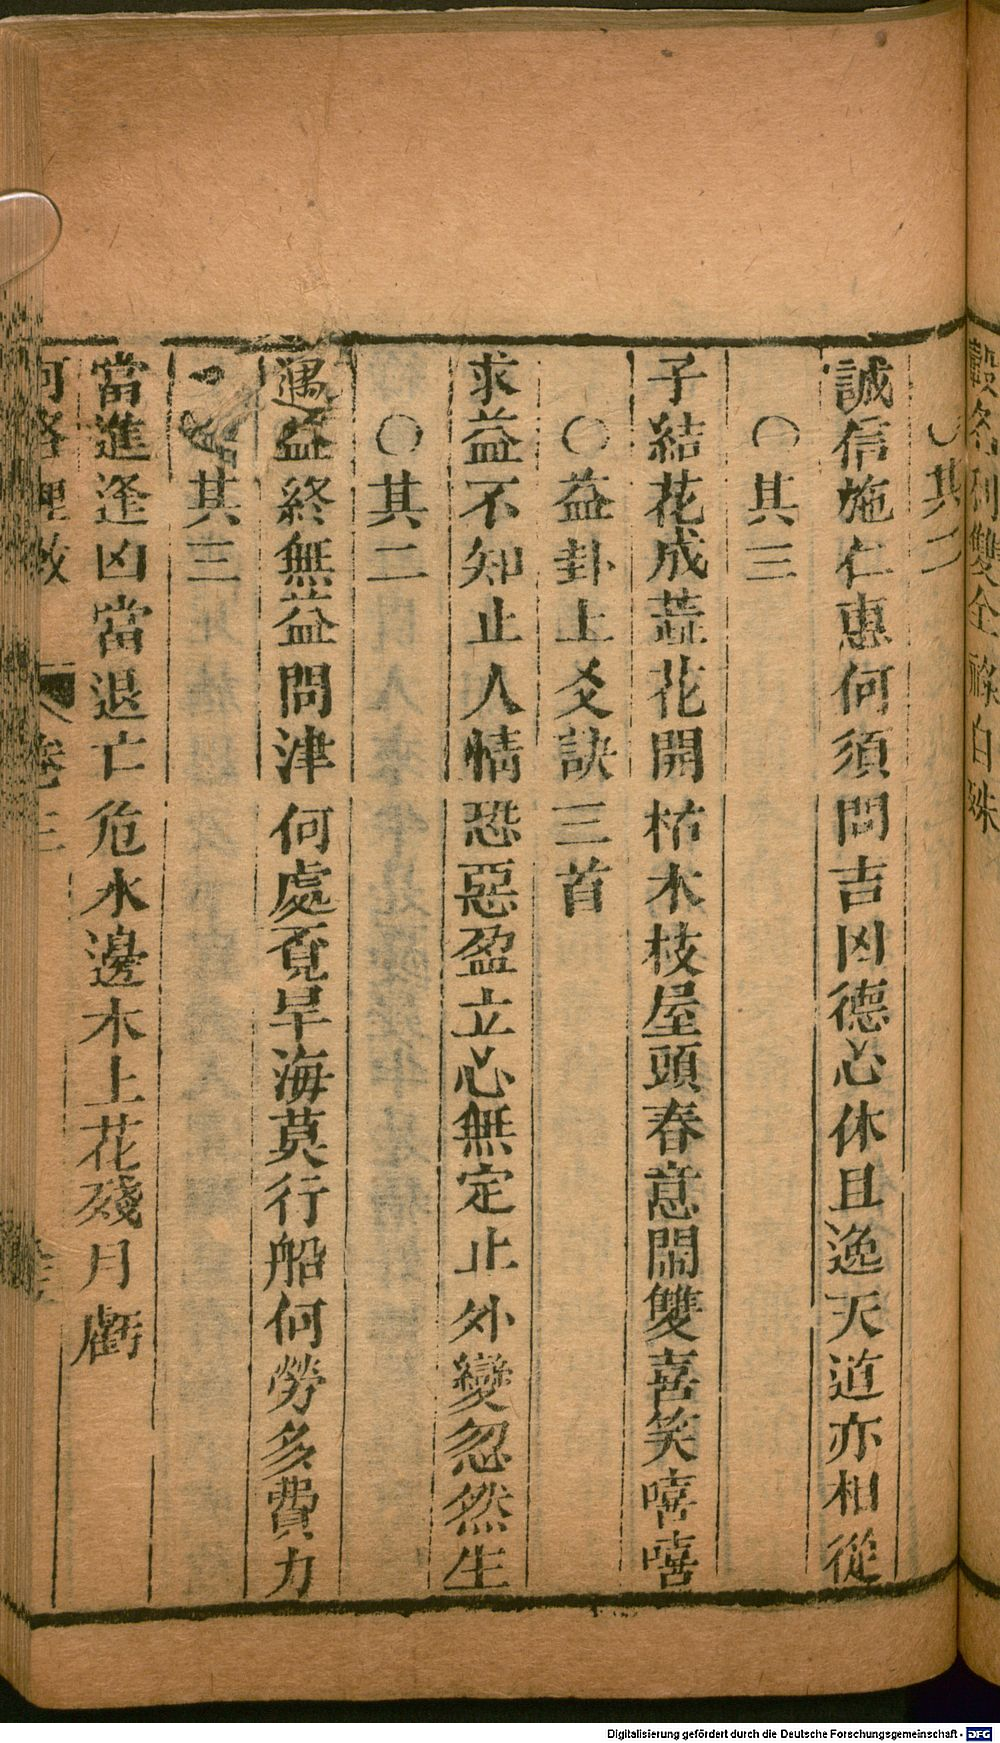 ○其二
誠信施仁惠何須問吉凶德心休且逸天道亦相從
○其三
子結花成蕋花開枯木枝屋頭春意鬧雙喜笑嘻嘻
○益卦上爻訣三首
求益不知止人情恐惡盈立心無定止外變忽然生
○其二
遇益終無益問津何處覔旱海莫行船何勞多費力
其三
當進逢凶當退亡危水邊木上花殘月虧
河洛理數 卷三
Digitalisierung gefördert durch die Deutsche Forschungsgemeinschaft - DFG